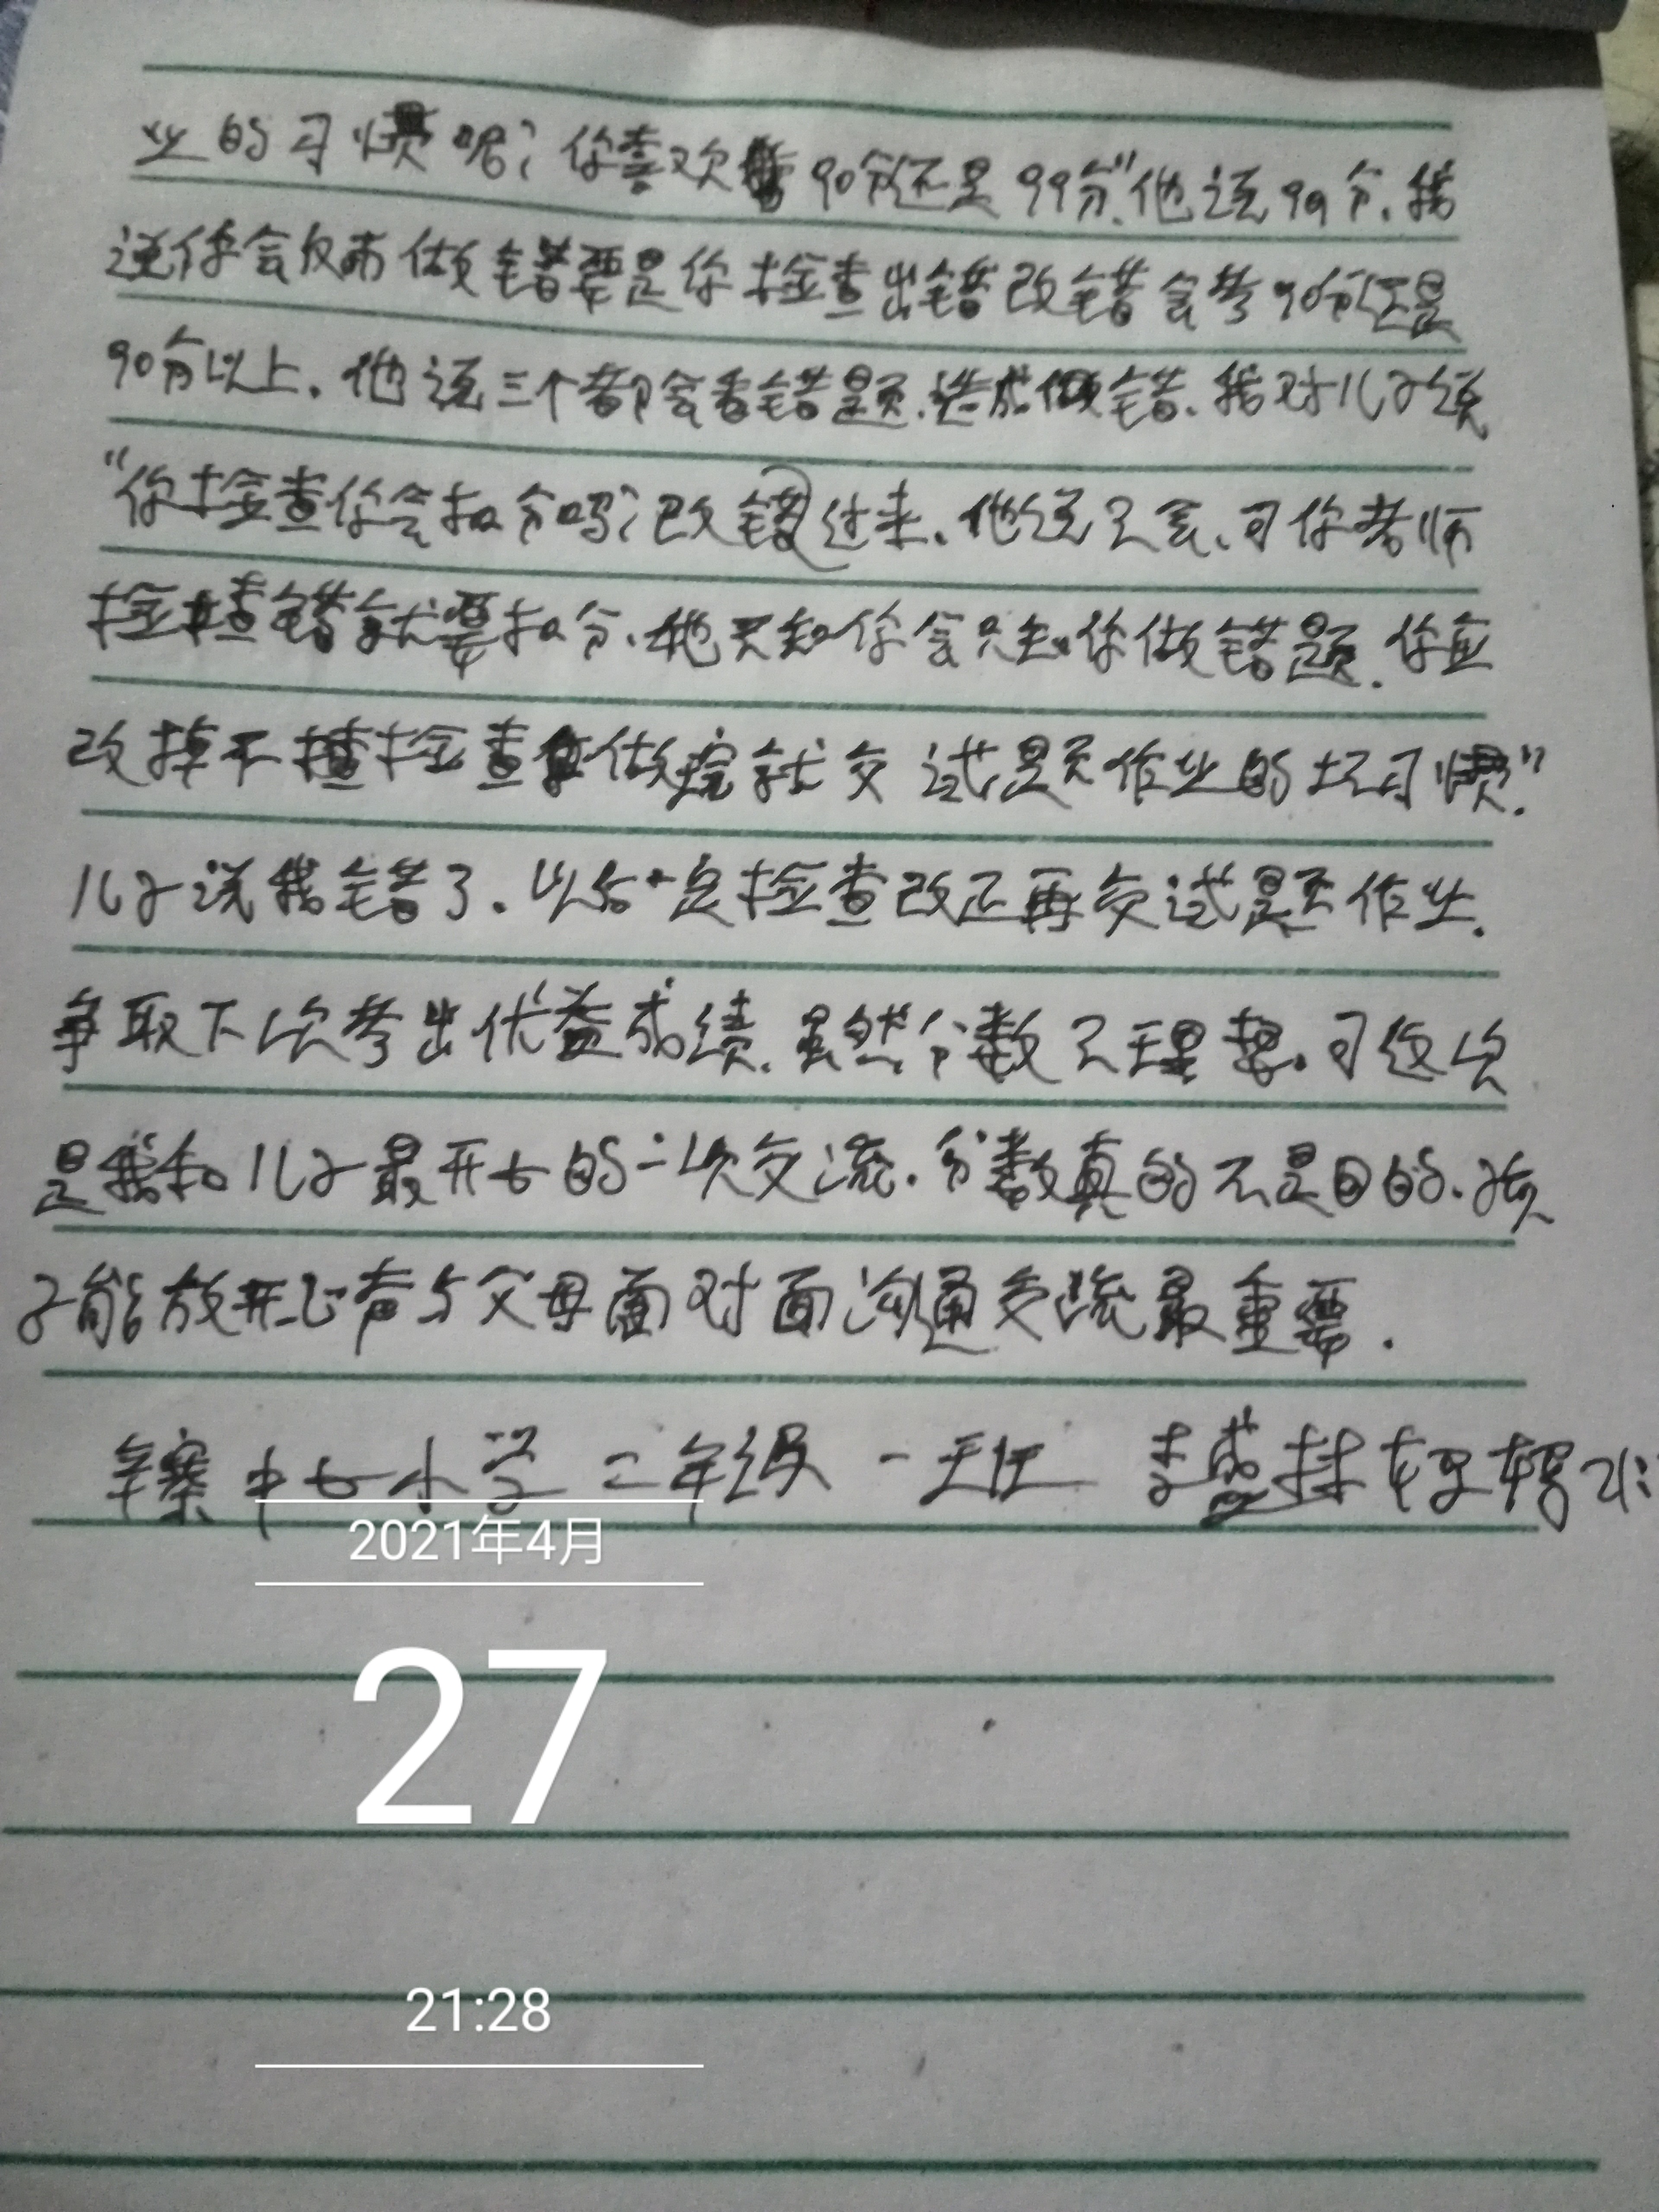 业的习惯呢?你喜欢 90分还是99分"他说99分.我
说你会 而做错要是你检查出错改错会考90分还是
90分以上.他说三个都会看错题.造成做错.我对儿子说
"你检查你会扣分吗?改错过来.他说不会.可你老师
检查错就要扣分.他不知你会只知你做错题.你应
改掉不检查 做完就交试题作业的坏习惯."
儿子说我错了.以后一定检查改正再交试题作业.
争取下次考出优益成绩.虽然分数不理想.可这次
是我和儿子最开心的一次交流.分数真的不是目的.孩
子能放开心声与父母面对面沟通交流最重要.
辛寨中心小学二年级一班 李 林
2021年4月
27
21:28